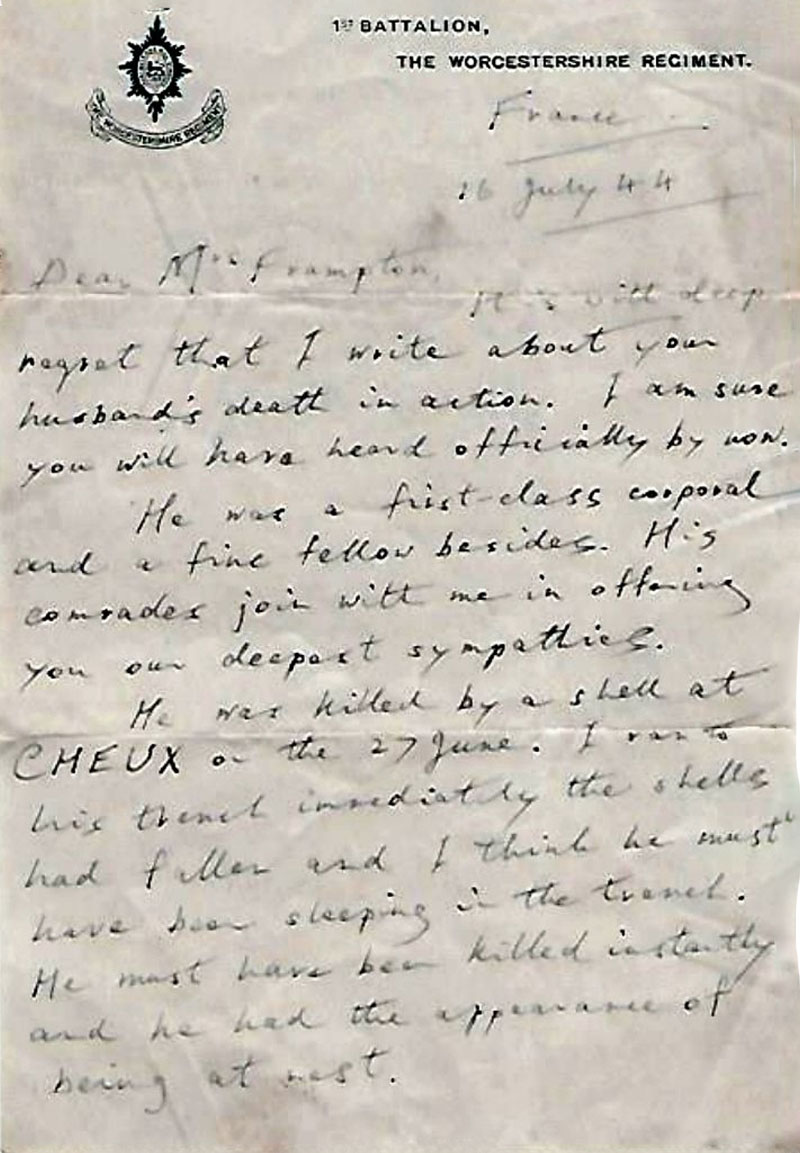 1ST BATTALION,
THE WORCESTERSHIRE REGIMENT.
THE WORCESTERSHIRE REGIMENT
France
16 July 44
Dear Mrs Frampton,
It is with deep
regret that I write about your
husband's death in action. I am sure
you will have heard officially by now.
He was a first-class corporal
and a fine fellow besides. His
comrades join with me in offering
you our deepest sympathies.
He was killed by a shell at
CHEUX on the 27 June. I ran to
his trench immediately the shells
had fallen and I think he must
have been sleeping in the trench.
He must have been killed instantly
and he had the appearance of
being at rest.